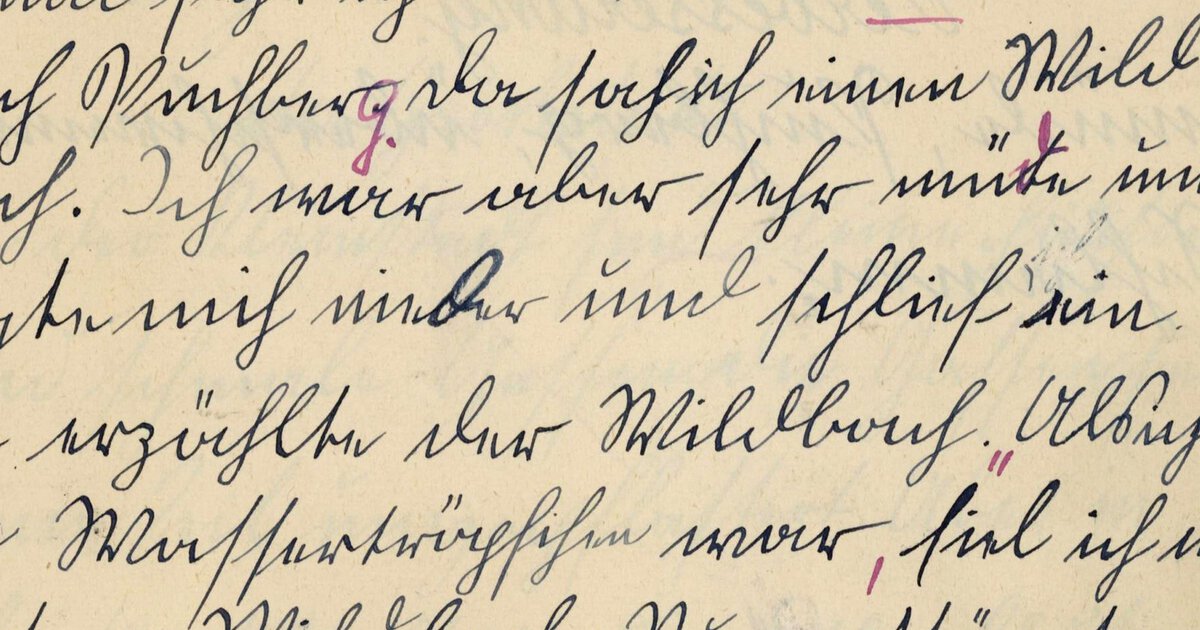 ch Puchberg. Da sah ich einen Wild
ch. Ich war aber sehr müde un
gte mich nieder und schlief ein.
erzählte der Wildbach. „Als ich
Wassertröpfchen war, fiel ich